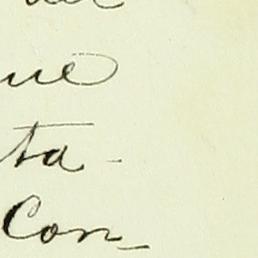 ue
ta-
Con-